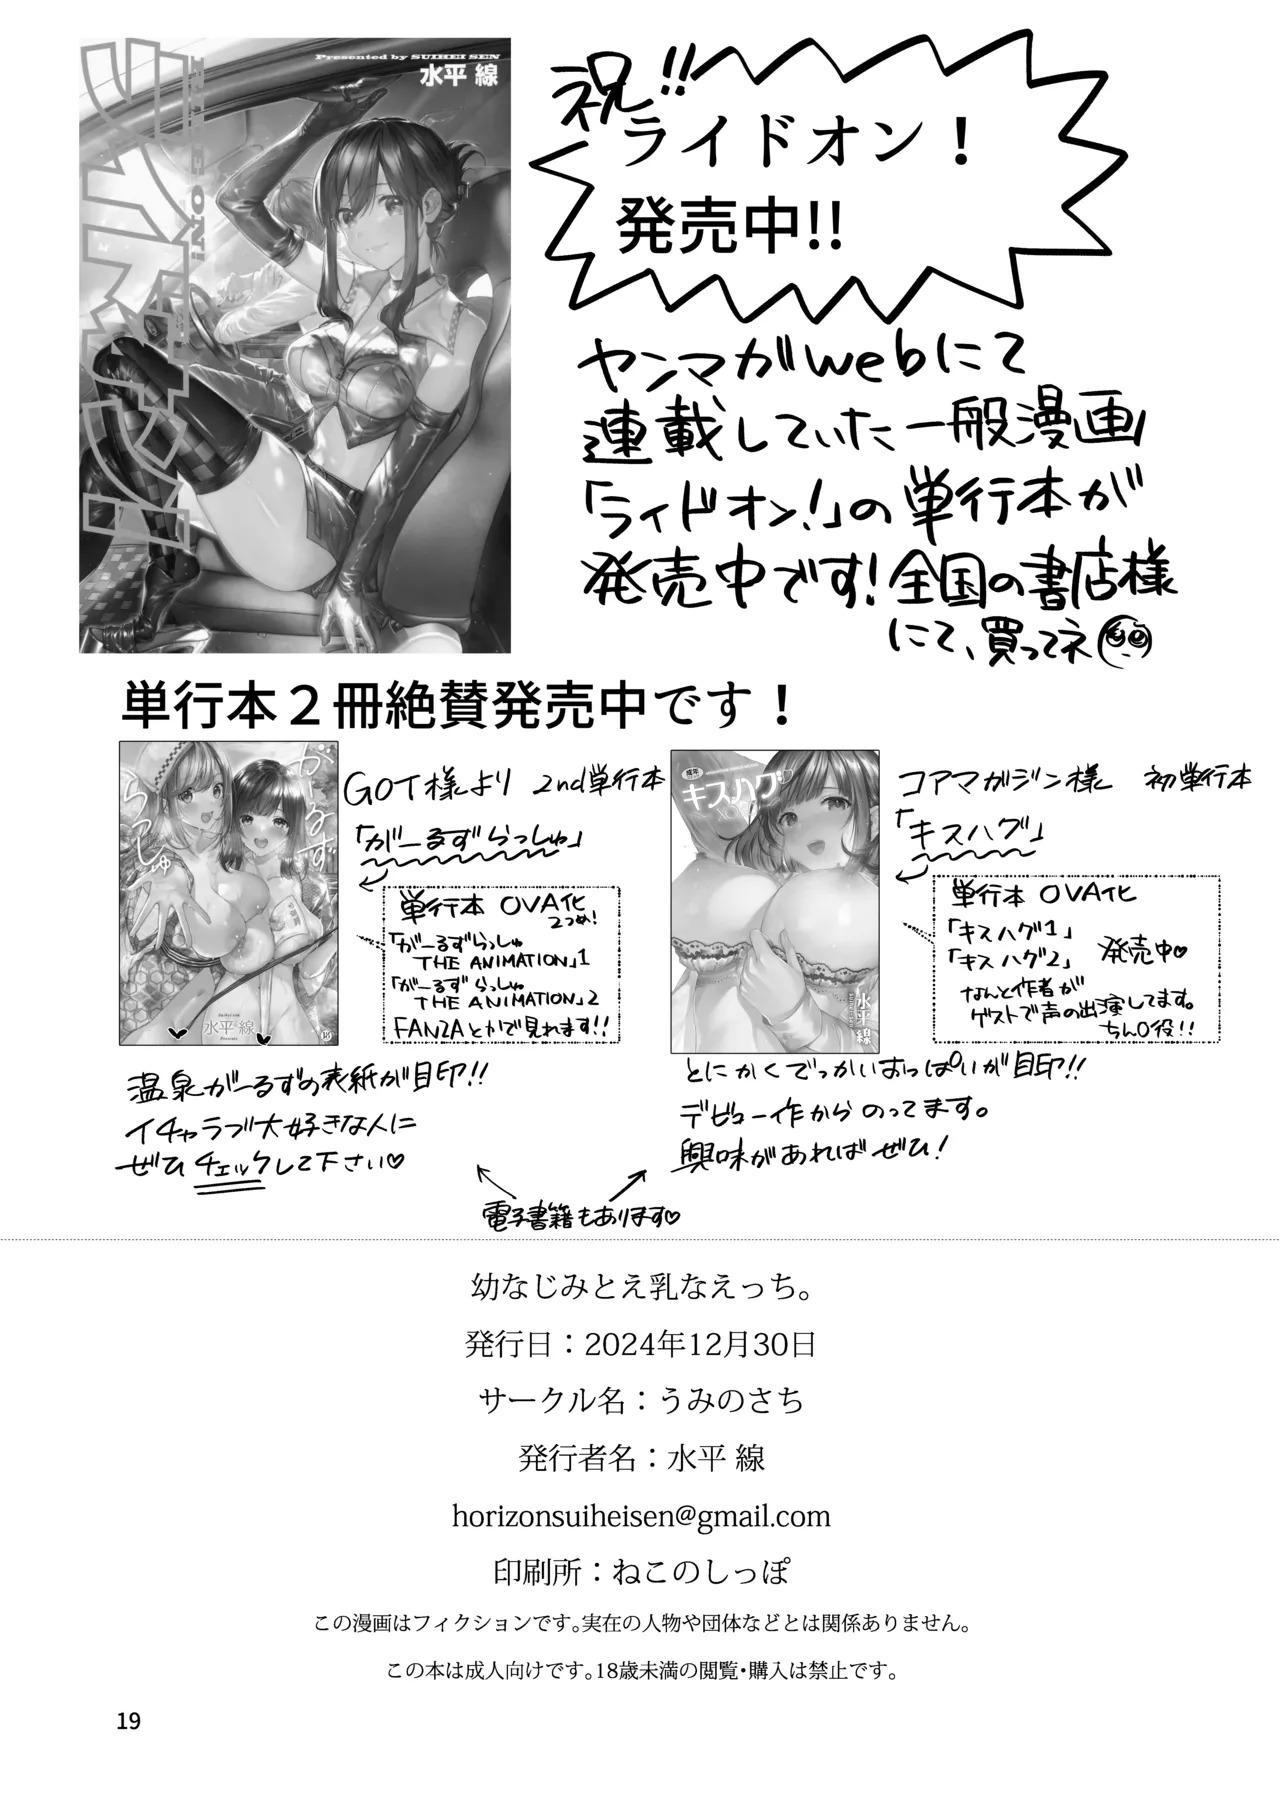 Presented by SUIHEI SEN
水平 線
RIDE ON!
ライドオン!
祝!!
ライドオン！
発売中!!
ヤンマガwebにて
連載していた一般漫画
「ライドオン!」の単行本が
発売中です!全国の書店様
にて、買ってネ
単行本２冊絶賛発売中です！
がーるず
らっしゅ
水平 線
GOT様より 2nd単行本
「がーるずらっしゅ」
単行本 OVA化
2つめ!
「がーるずらっしゅ
THE ANIMATION」1
「がーるずらっしゅ
THE ANIMATION」2
FANZAとかで見れます!!
温泉がーるずの表紙が目印!!
イチャラブ大好きな人に
ぜひチェックして下さい♡
成年
キスハグ
水平線
コアマガジン様 初単行本
「キスハグ」
単行本 OVA化
「キスハグ1」
「キスハグ2」 発売中♡
なんと作者が
ゲストで声の出演してます。
ちん〇役!!
とにかくでっかいおっぱいが目印!!
デビュー作からのってます。
興味があればぜひ!
電子書籍もあります♡
幼なじみとえ乳なえっち。
発行日：2024年12月30日
サークル名：うみのさち
発行者名：水平 線
horizonsuiheisen@gmail.com
印刷所：ねこのしっぽ
この漫画はフィクションです。実在の人物や団体などとは関係ありません。
この本は成人向けです。18歳未満の閲覧・購入は禁止です。
19